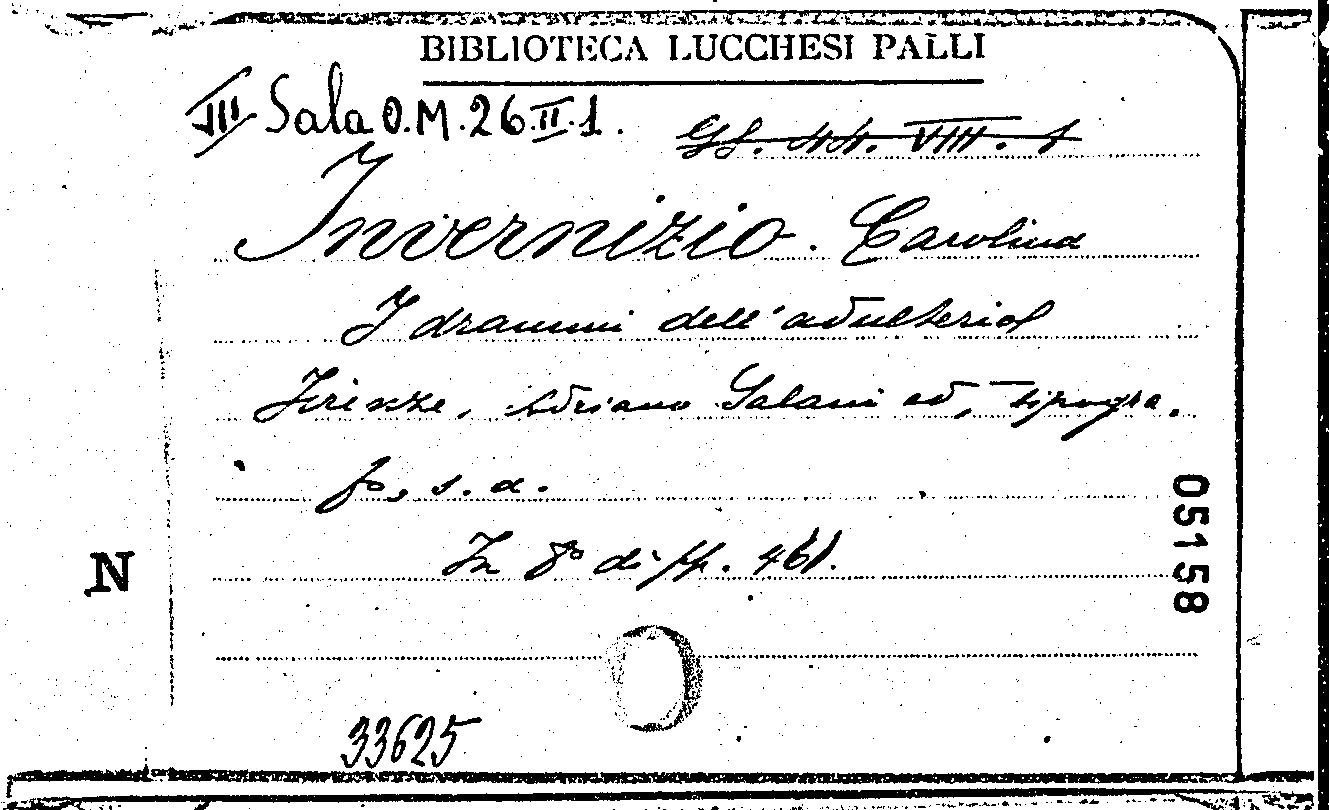 BIBLIOTECA LUCCHESI PALLI
VII Sala O.M.26.II.1. Gf. 44. VIII. 1
Invernizio. Carolina
I drammi dell'adulterio
Firenze, Adriano Salani ed, tipogra.
fo, s. a.
In 8° di pp. 461.
05158
N
33625